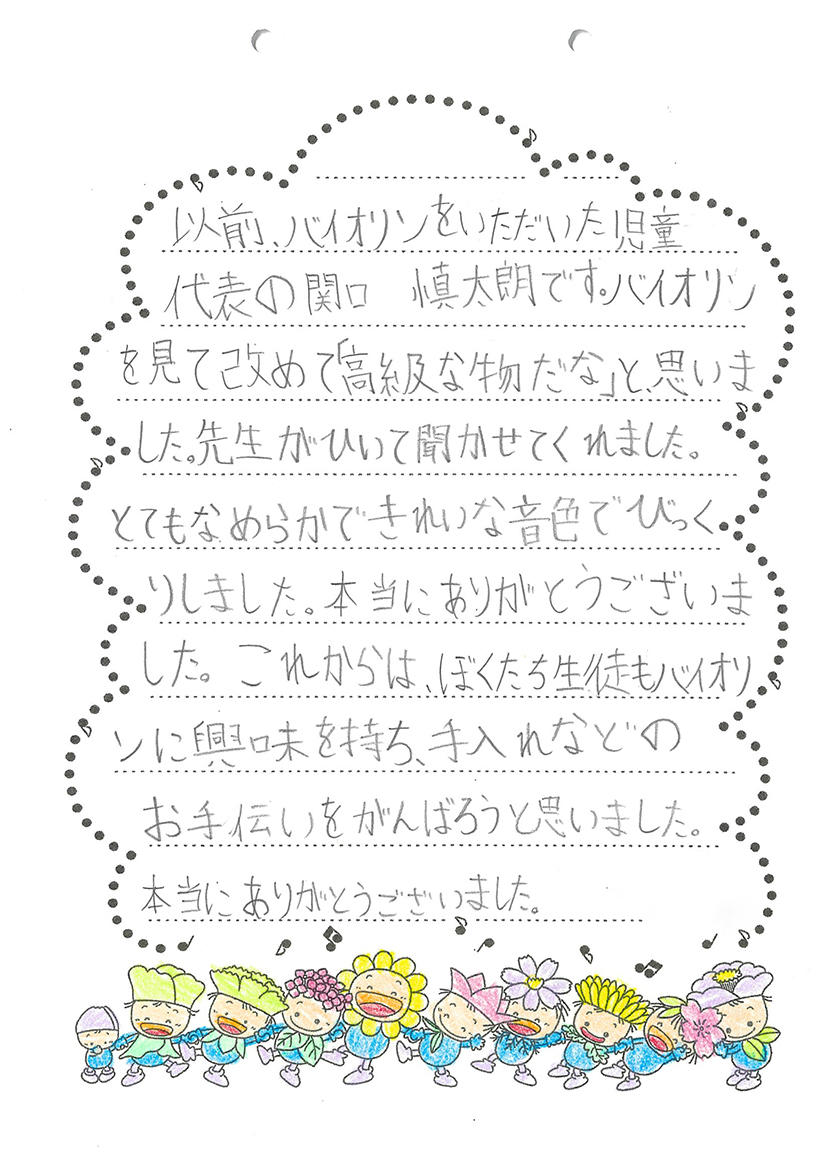 以前、バイオリンをいただいた児童
代表の関口 慎太朗です。バイオリン
を見て改めて「高級な物だな」と、思いま
した。先生がひいて聞かせてくれました。
とてもなめらかできれいな音色でびっく
りしました。本当にありがとうございま
した。これからは、ぼくたち生徒もバイオリ
ンに興味を持ち、手入れなどの
お手伝いをがんばろうと思いました。
本当にありがとうございました。